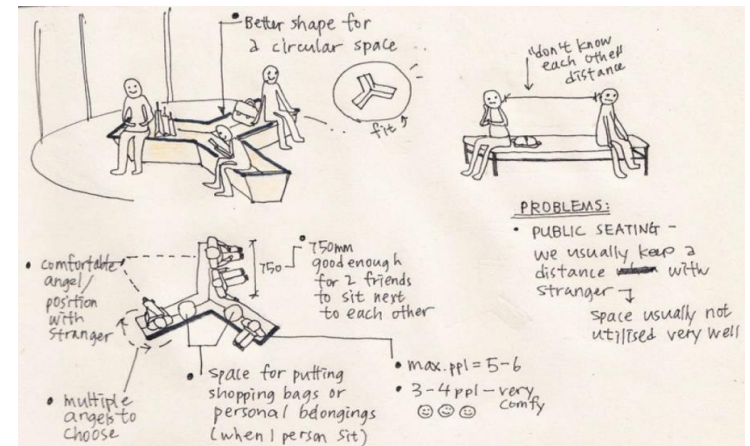 • Better shape for
a circular space
fit
"don't know
each other"
distance
PROBLEMS:
• PUBLIC SEATING -
we usually keep a
distance with
stranger →
space usually not
utilised very well
• comfortable
angel/
position
with
stranger
• multiple
angels to
choose
750
• 750mm
good enough
for 2 friends
to sit next
to each other
• Space for putting
shopping bags or
personal belongings
(when 1 person sit)
• max. ppl = 5-6
• 3-4 ppl - very
comfy